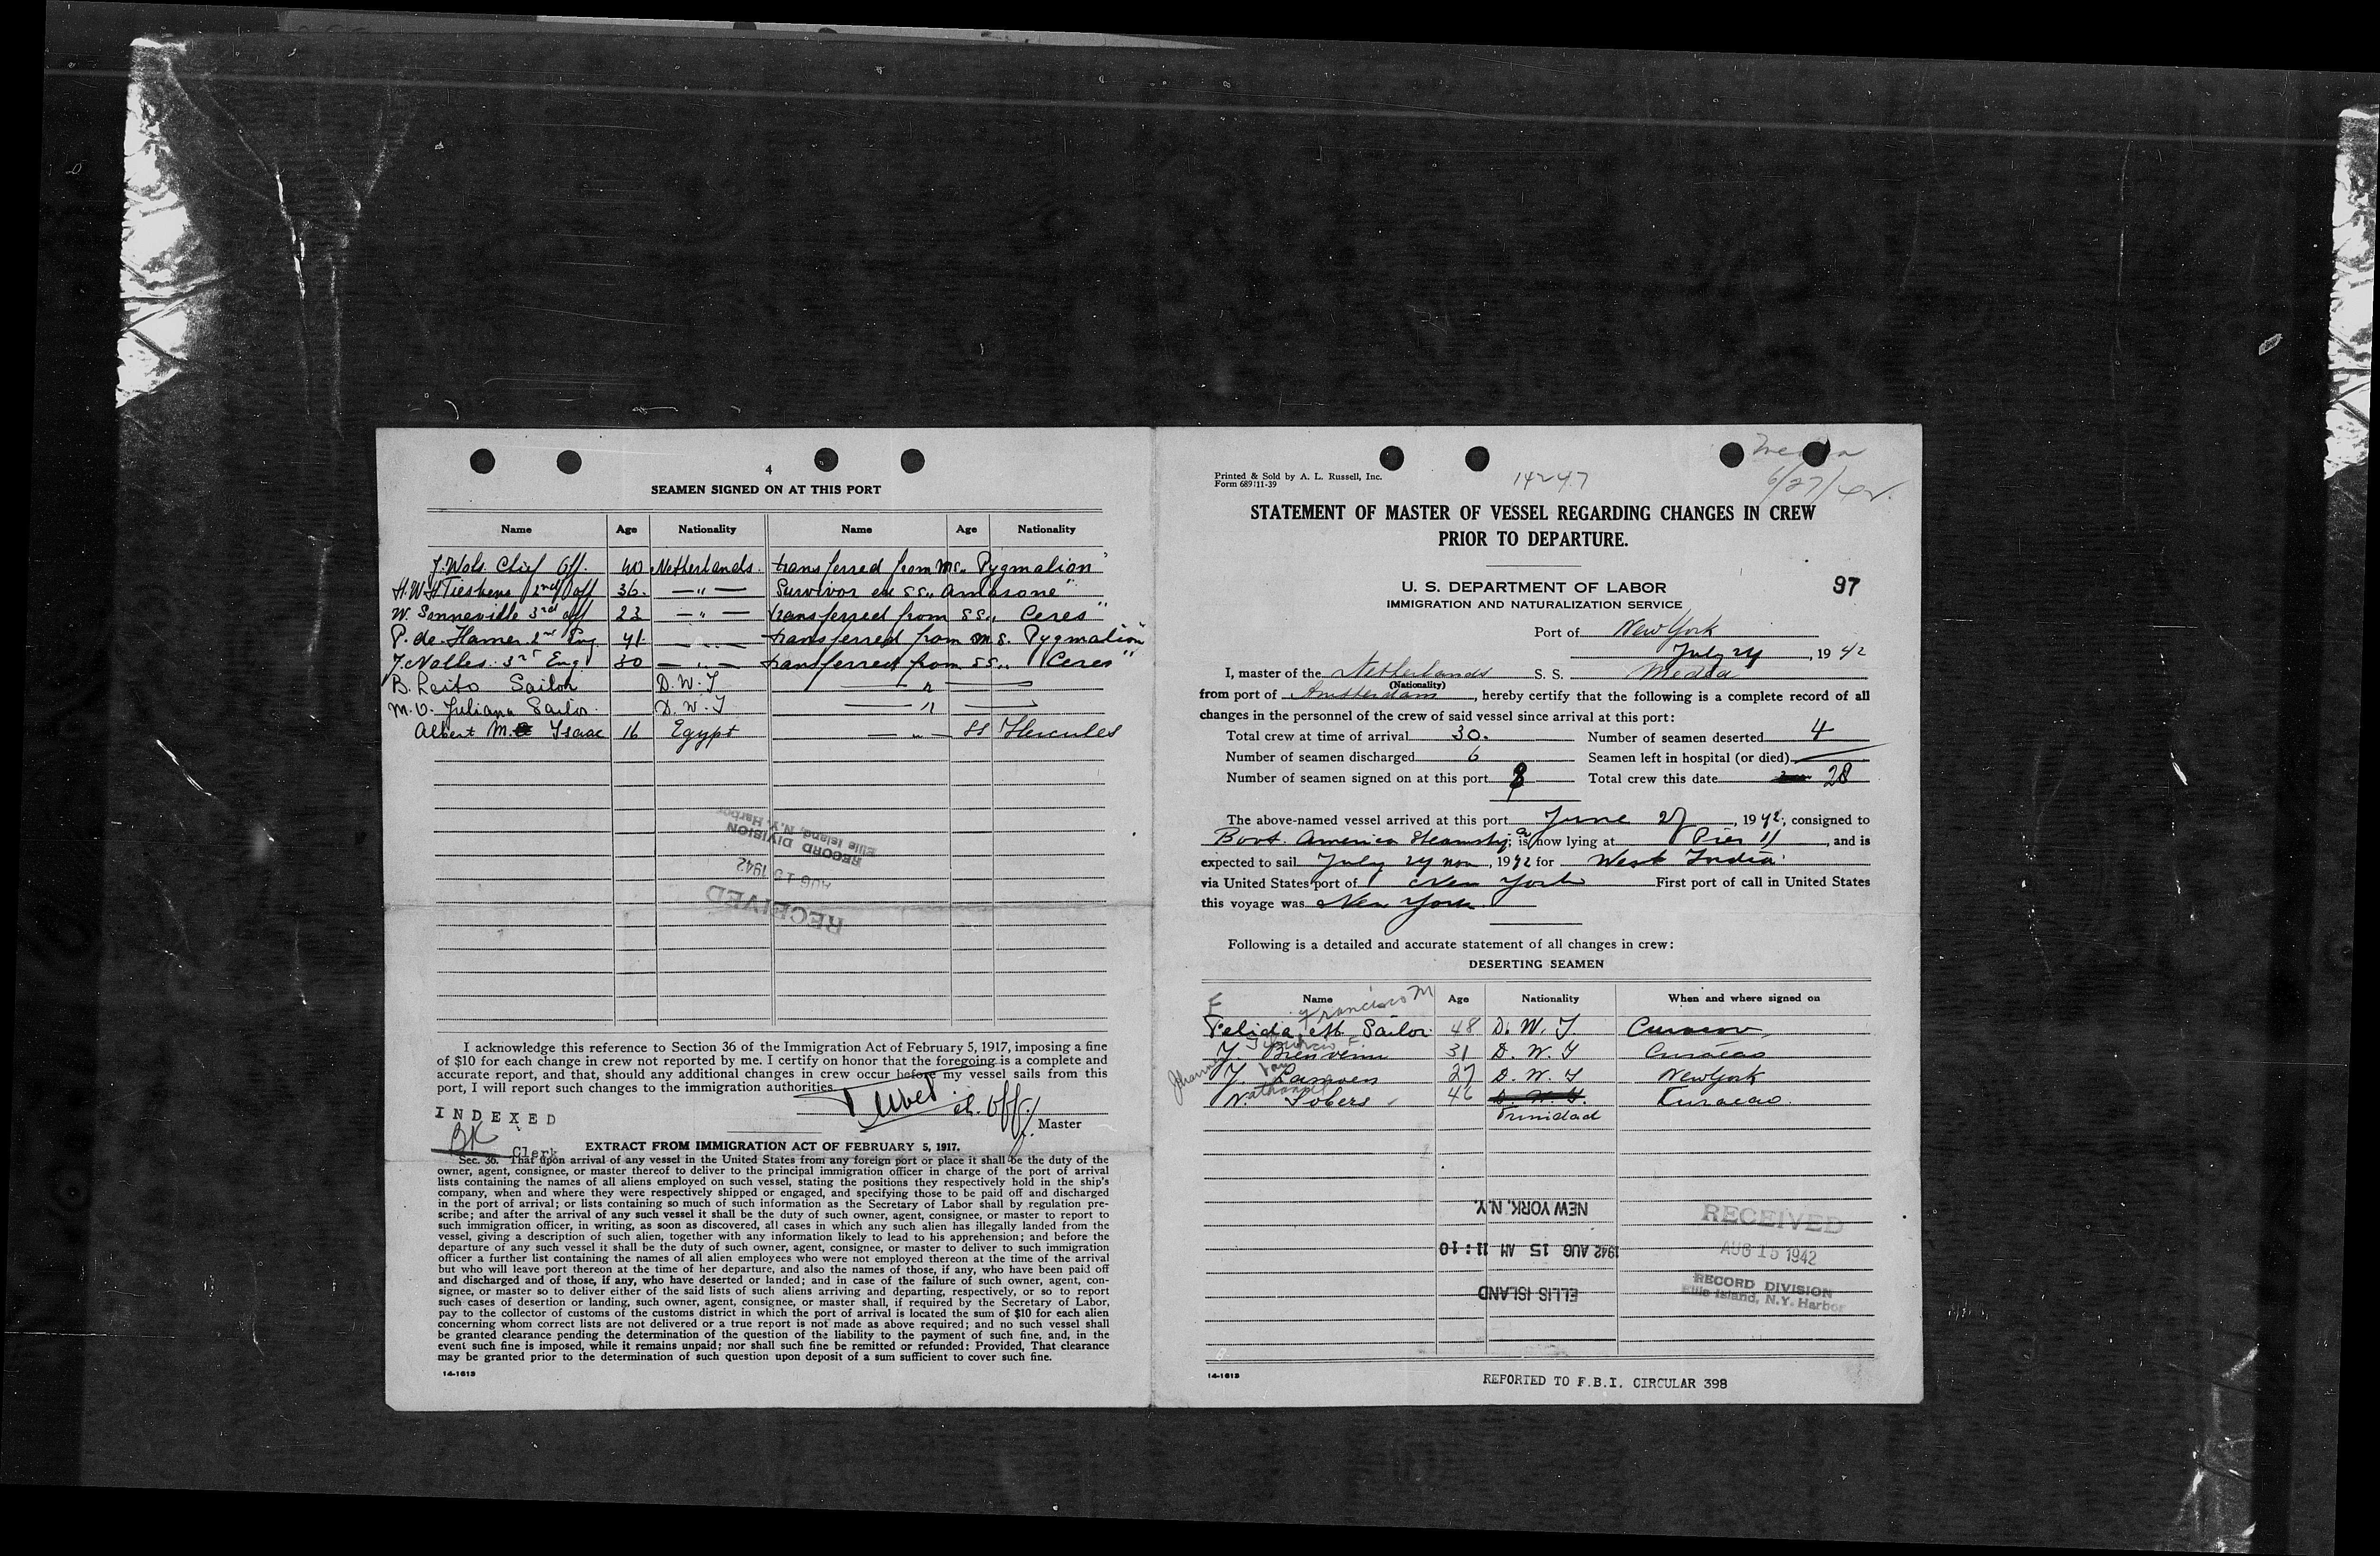 4
SEAMEN SIGNED ON AT THIS PORT
Name Age Nationality Name Age Nationality
J. Wols Chief Off. 40 Netherlands. transferred from ms. "Pygmalion"
H.W. Tieskens 2nd off 36. —"— Survivor ex ss.
W. Sonneville 3rd off 23 —"— transferred from ss. "Ceres"
P. de Hamer 2nd Eng. 41. —"— transferred from ms. "Pygmalion"
J. Nolles 3rd Eng 30 —"— transferred from ss. "Ceres"
B. Leito Sailor D.W.I —"—
M.V. Juliana Sailor. D.W.I —"—
Albert M. Isaac 16 Egypt —"— SS Hercules
RECORD DIVISION
Ellis Island, N.Y. Harbor
AUG 15 1942
RECEIVED
I acknowledge this reference to Section 36 of the Immigration Act of February 5, 1917, imposing a fine
of $10 for each change in crew not reported by me. I certify on honor that the foregoing is a complete and
accurate report, and that, should any additional changes in crew occur before my vessel sails from this
port, I will report such changes to the immigration authorities.
ch. Off.
INDEXED
, Master
BK
Clerk
EXTRACT FROM IMMIGRATION ACT OF FEBRUARY 5, 1917.
Sec. 36. That upon arrival of any vessel in the United States from any foreign port or place it shall be the duty of the
owner, agent, consignee, or master thereof to deliver to the principal immigration officer in charge of the port of arrival
lists containing the names of all aliens employed on such vessel, stating the positions they respectively hold in the ship's
company, when and where they were respectively shipped or engaged, and specifying those to be paid off and discharged
in the port of arrival; or lists containing so much of such information as the Secretary of Labor shall by regulation pre-
scribe; and after the arrival of any such vessel it shall be the duty of such owner, agent, consignee, or master to report to
such immigration officer, in writing, as soon as discovered, all cases in which any such alien has illegally landed from the
vessel, giving a description of such alien, together with any information likely to lead to his apprehension; and before the
departure of any such vessel it shall be the duty of such owner, agent, consignee, or master to deliver to such immigration
officer a further list containing the names of all alien employees who were not employed thereon at the time of the arrival
but who will leave port thereon at the time of her departure, and also the names of those, if any, who have been paid off
and discharged and of those, if any, who have deserted or landed; and in case of the failure of such owner, agent, con-
signee, or master so to deliver either of the said lists of such aliens arriving and departing, respectively, or so to report
such cases of desertion or landing, such owner, agent, consignee, or master shall, if required by the Secretary of Labor,
pay to the collector of customs of the customs district in which the port of arrival is located the sum of $10 for each alien
concerning whom correct lists are not delivered or a true report is not made as above required; and no such vessel shall
be granted clearance pending the determination of the question of the liability to the payment of such fine, and, in the
event such fine is imposed, while it remains unpaid; nor shall such fine be remitted or refunded: Provided, That clearance
may be granted prior to the determination of such question upon deposit of a sum sufficient to cover such fine.
14-1613
Medea
6/27/42.
Printed & Sold by A. L. Russell, Inc.
Form 689:11-39
14247
STATEMENT OF MASTER OF VESSEL REGARDING CHANGES IN CREW
PRIOR TO DEPARTURE.
U. S. DEPARTMENT OF LABOR
IMMIGRATION AND NATURALIZATION SERVICE
97
Port of New York
July 24, 1942
I, master of the Netherlands S. S. Medea
(Nationality)
from port of Amsterdam, hereby certify that the following is a complete record of all
changes in the personnel of the crew of said vessel since arrival at this port:
Total crew at time of arrival 30. Number of seamen deserted 4
Number of seamen discharged 6 Seamen left in hospital (or died)
Number of seamen signed on at this port 8 Total crew this date 28
The above-named vessel arrived at this port June 27, 1942, consigned to
America Steamship; is now lying at Pier 11, and is
expected to sail July 24, 1942 for West India
via United States port of New York First port of call in United States
this voyage was New York
Following is a detailed and accurate statement of all changes in crew:
DESERTING SEAMEN
Name Age Nationality When and where signed on
F Francisco M
Felicia M. Sailor 48 D. W. I. Curacao
J. Bienvenu 31 D. W. I Curacao
Johannes
J. 27 D. W. I New York
Nathaniel
N. Sobers 46 D. W. I. Curacao.
Trinidad
NEW YORK, N.Y.
1942 AUG 15 AM 11:10
ELLIS ISLAND
RECEIVED
AUG 15 1942
RECORD DIVISION
Ellis Island, N.Y. Harbor
14-1613
REPORTED TO F.B.I. CIRCULAR 398